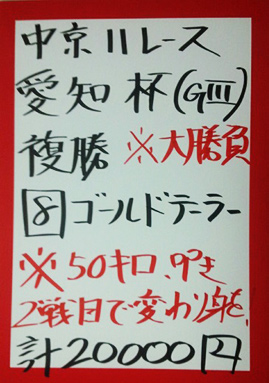 中京11レース
愛知杯(GIII)
複勝 ※大勝負
8 ゴールドテーラー
※50キロ、叩き
2戦目で変わり身を、
計20000円